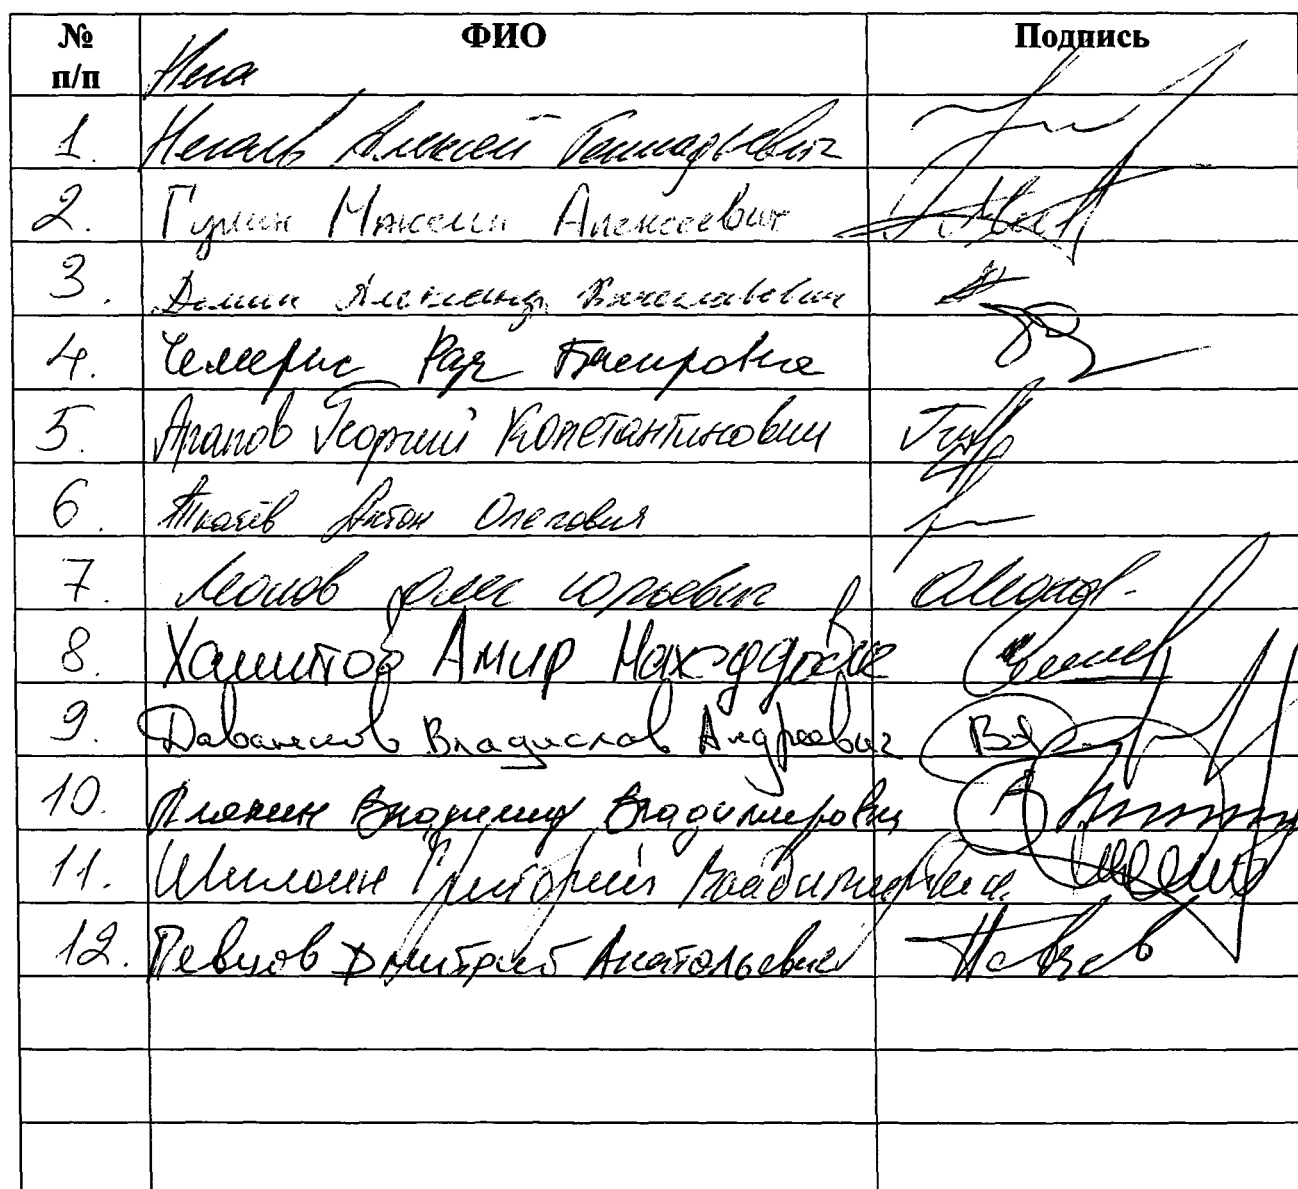 № п/п ФИО Подпись
Неча
1. Нечаев Алексей Геннадьевич
2. Гулин Максим Алексеевич
3. Демин Александр Вячеславович
4. Чемерис Роза Басировна
5. Арапов Георгий Константинович
6. Ткачёв Антон Олегович
7. Леонов Олег Юрьевич
8. Хамитов Амир
9. Даванков Владислав Андреевич ВД
10. Плякин Владимир Владимирович
11. Шилкин Григорий Владимирович
12. Певцов Дмитрий Анатольевич Певцов